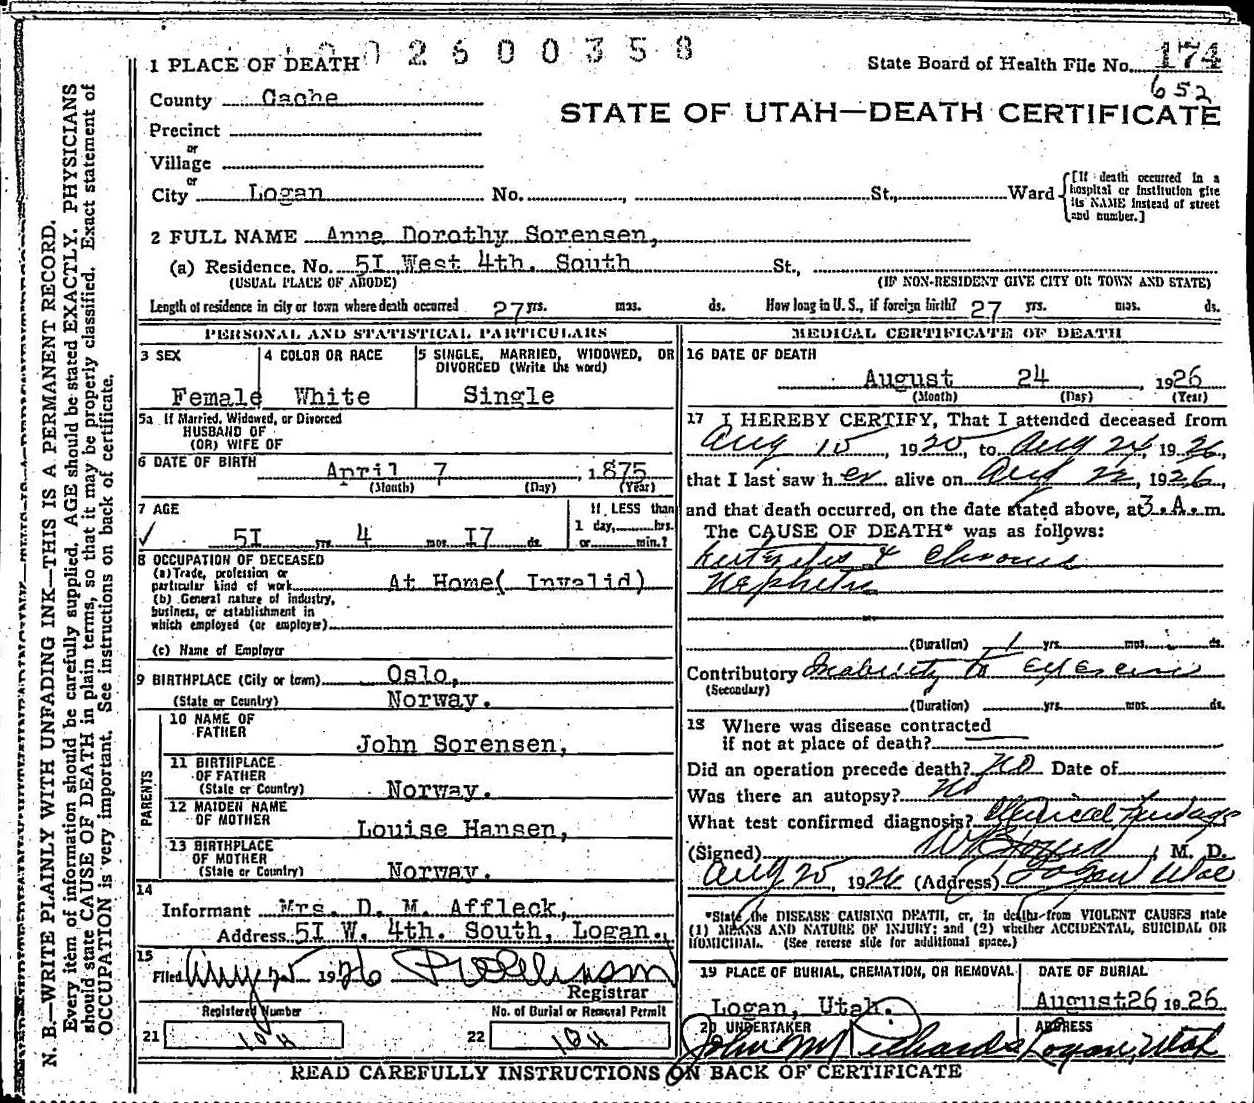 0026003 58
1 PLACE OF DEATH
State Board of Health File No. 174
652
County Cache
STATE OF UTAH—DEATH CERTIFICATE
Precinct
or
Village
or
City Logan No. , St., Ward
[If death occurred in a hospital or institution give its NAME instead of street and number.]
2 FULL NAME Anna Dorothy Sorensen,
(a) Residence. No. 5I West 4th. South St.,
(USUAL PLACE OF ABODE) (IF NON-RESIDENT GIVE CITY OR TOWN AND STATE)
Length of residence in city or town where death occurred 27 yrs. mos. ds. How long in U. S., if foreign birth? 27 yrs. mos. ds.
PERSONAL AND STATISTICAL PARTICULARS
3 SEX
Female
4 COLOR OR RACE
White
5 SINGLE, MARRIED, WIDOWED, OR DIVORCED (Write the word)
Single
5a If Married, Widowed, or Divorced
HUSBAND OF
(OR) WIFE OF
6 DATE OF BIRTH
April 7, 1875
(Month) (Day) (Year)
7 AGE
5I yrs. 4 mos. I7 ds.
If LESS than
1 day, hrs.
or min.?
8 OCCUPATION OF DECEASED
(a) Trade, profession or
particular kind of work At Home( Invalid)
(b) General nature of industry,
business, or establishment in
which employed (or employer)
(c) Name of Employer
9 BIRTHPLACE (City or town) Oslo,
(State or Country) Norway.
PARENTS
10 NAME OF
FATHER
John Sorensen,
11 BIRTHPLACE
OF FATHER
(State or Country) Norway.
12 MAIDEN NAME
OF MOTHER
Louise Hansen,
13 BIRTHPLACE
OF MOTHER
(State or Country) Norway.
14
Informant Mrs. D. M. Affleck,
Address 5I W. 4th. South, Logan.
15
Filed Aug 25 1926
Registrar
Registered Number
21 104
No. of Burial or Removal Permit
22 104
MEDICAL CERTIFICATE OF DEATH
16 DATE OF DEATH
August 24, 1926
(Month) (Day) (Year)
17 I HEREBY CERTIFY, That I attended deceased from
Aug 15, 1920, to Aug 24, 1926,
that I last saw her alive on Aug 22, 1926,
and that death occurred, on the date stated above, at 3.A.m.
The CAUSE OF DEATH* was as follows:
& Chronic
Nephritis
(Duration) 1 yrs. mos. ds.
Contributory Inability to exercise
(Secondary)
(Duration) yrs. mos. ds.
18 Where was disease contracted
if not at place of death?
Did an operation precede death? No Date of
Was there an autopsy? No
What test confirmed diagnosis? Clinical findings
(Signed) M. D.
Aug 25, 1926 (Address) Logan
*State the DISEASE CAUSING DEATH, or, in deaths from VIOLENT CAUSES state
(1) MEANS AND NATURE OF INJURY; and (2) whether ACCIDENTAL, SUICIDAL OR
HOMICIDAL. (See reverse side for additional space.)
19 PLACE OF BURIAL, CREMATION, OR REMOVAL
Logan, Utah.
DATE OF BURIAL
August26, 1926
20 UNDERTAKER
John M Richards
ADDRESS
Logan, Utah
READ CAREFULLY INSTRUCTIONS ON BACK OF CERTIFICATE
N. B.—WRITE PLAINLY WITH UNFADING INK—THIS IS A PERMANENT RECORD.
Every item of information should be carefully supplied. AGE should be stated EXACTLY. PHYSICIANS
should state CAUSE OF DEATH in plain terms, so that it may be properly classified. Exact statement of
OCCUPATION is very important. See instructions on back of certificate.